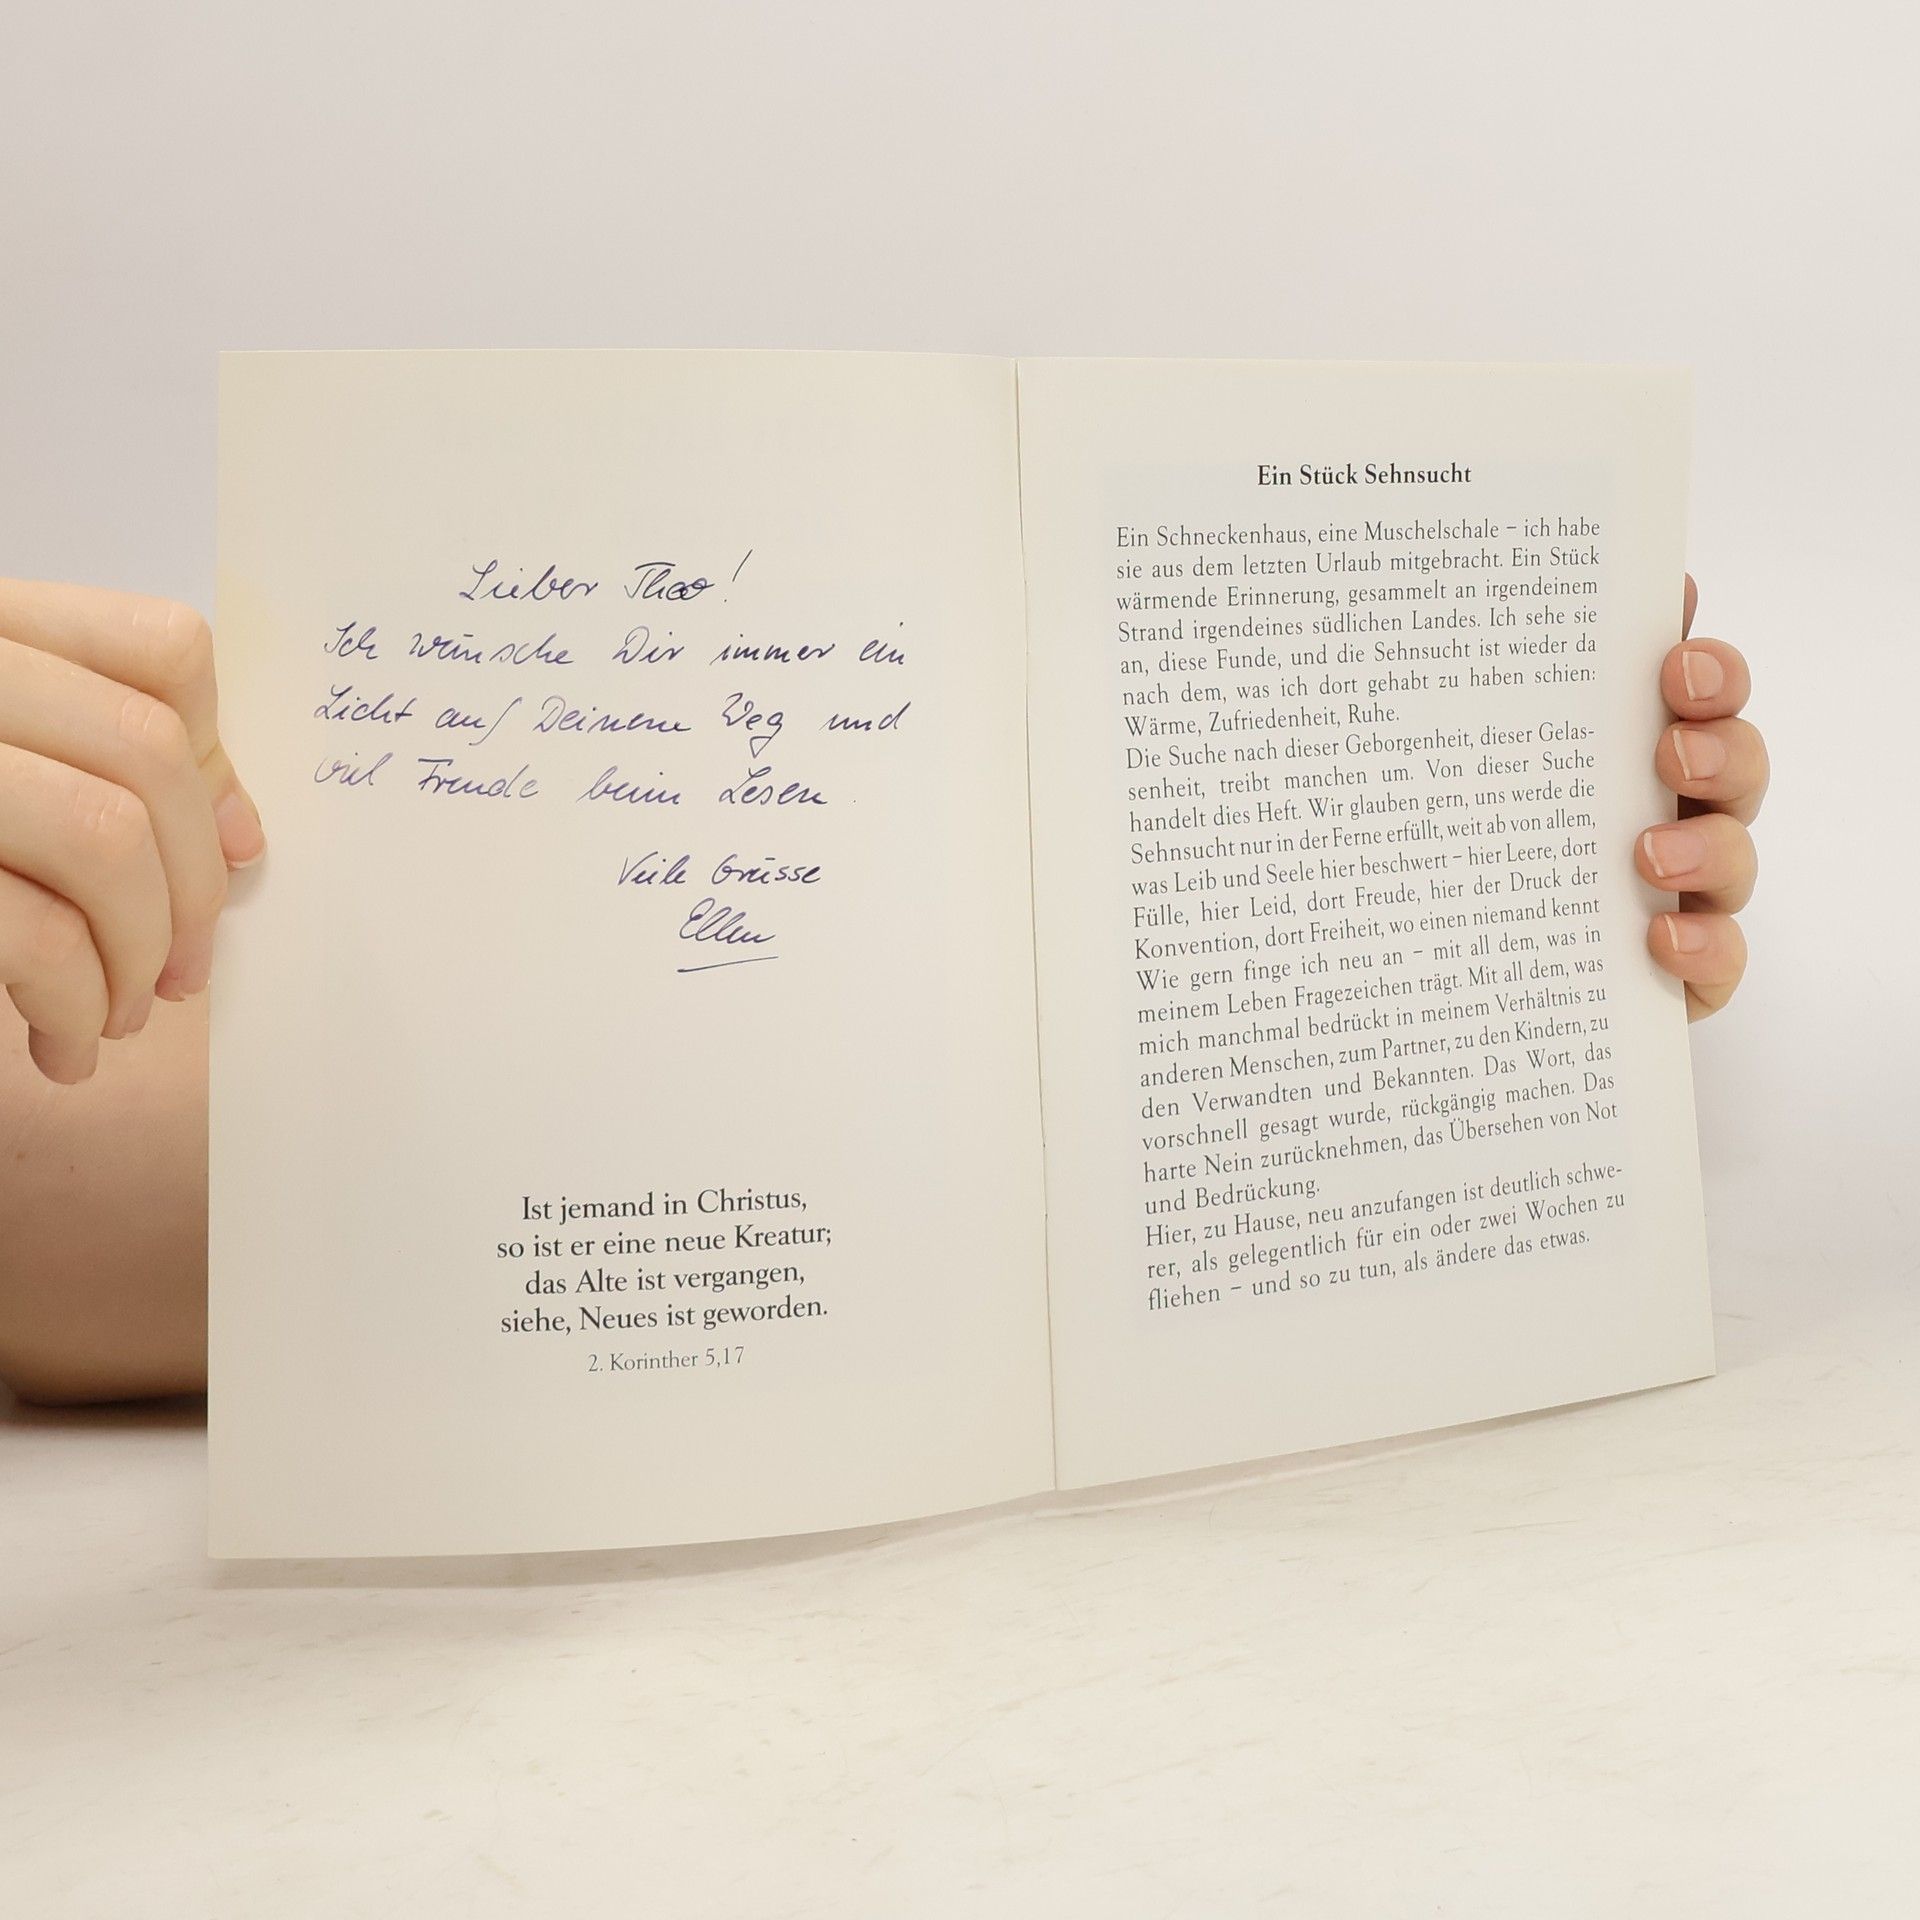 Lieber Theo!
Ich wünsche Dir immer ein
Licht auf Deinem Weg und
viel Freude beim Lesen.
Viele Grüsse
Ellen
Ist jemand in Christus,
so ist er eine neue Kreatur;
das Alte ist vergangen,
siehe, Neues ist geworden.
2. Korinther 5,17
Ein Stück Sehnsucht
Ein Schneckenhaus, eine Muschelschale – ich habe
sie aus dem letzten Urlaub mitgebracht. Ein Stück
wärmende Erinnerung, gesammelt an irgendeinem
Strand irgendeines südlichen Landes. Ich sehe sie
an, diese Funde, und die Sehnsucht ist wieder da
nach dem, was ich dort gehabt zu haben schien:
Wärme, Zufriedenheit, Ruhe.
Die Suche nach dieser Geborgenheit, dieser Gelas-
senheit, treibt manchen um. Von dieser Suche
handelt dies Heft. Wir glauben gern, uns werde die
Sehnsucht nur in der Ferne erfüllt, weit ab von allem,
was Leib und Seele hier beschwert – hier Leere, dort
Fülle, hier Leid, dort Freude, hier der Druck der
Konvention, dort Freiheit, wo einen niemand kennt
Wie gern finge ich neu an – mit all dem, was in
meinem Leben Fragezeichen trägt. Mit all dem, was
mich manchmal bedrückt in meinem Verhältnis zu
anderen Menschen, zum Partner, zu den Kindern, zu
den Verwandten und Bekannten. Das Wort, das
vorschnell gesagt wurde, rückgängig machen. Das
harte Nein zurücknehmen, das Übersehen von Not
und Bedrückung.
Hier, zu Hause, neu anzufangen ist deutlich schwe-
rer, als gelegentlich für ein oder zwei Wochen zu
fliehen – und so zu tun, als ändere das etwas.